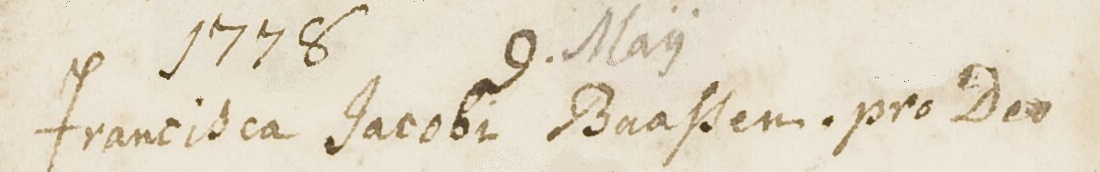 1778 9. Maÿ
Francisca Jacobi Baassen. pro Deo